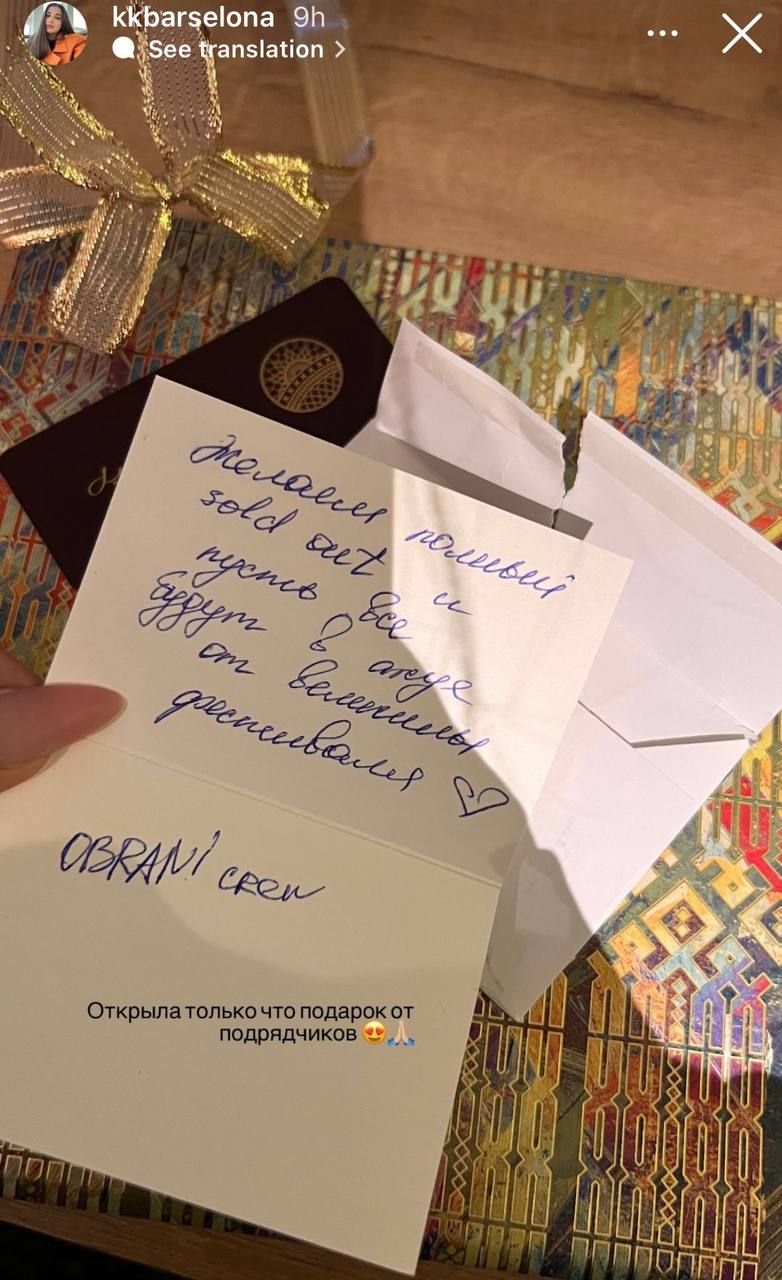 kkbarselona 9h
See translation
Желаем полный
sold out и
пусть все
будут в ахуе
от величины
фестиваля ♡
OBRANI crew
Открыла только что подарок от
подрядчиков 😍🙏🏻